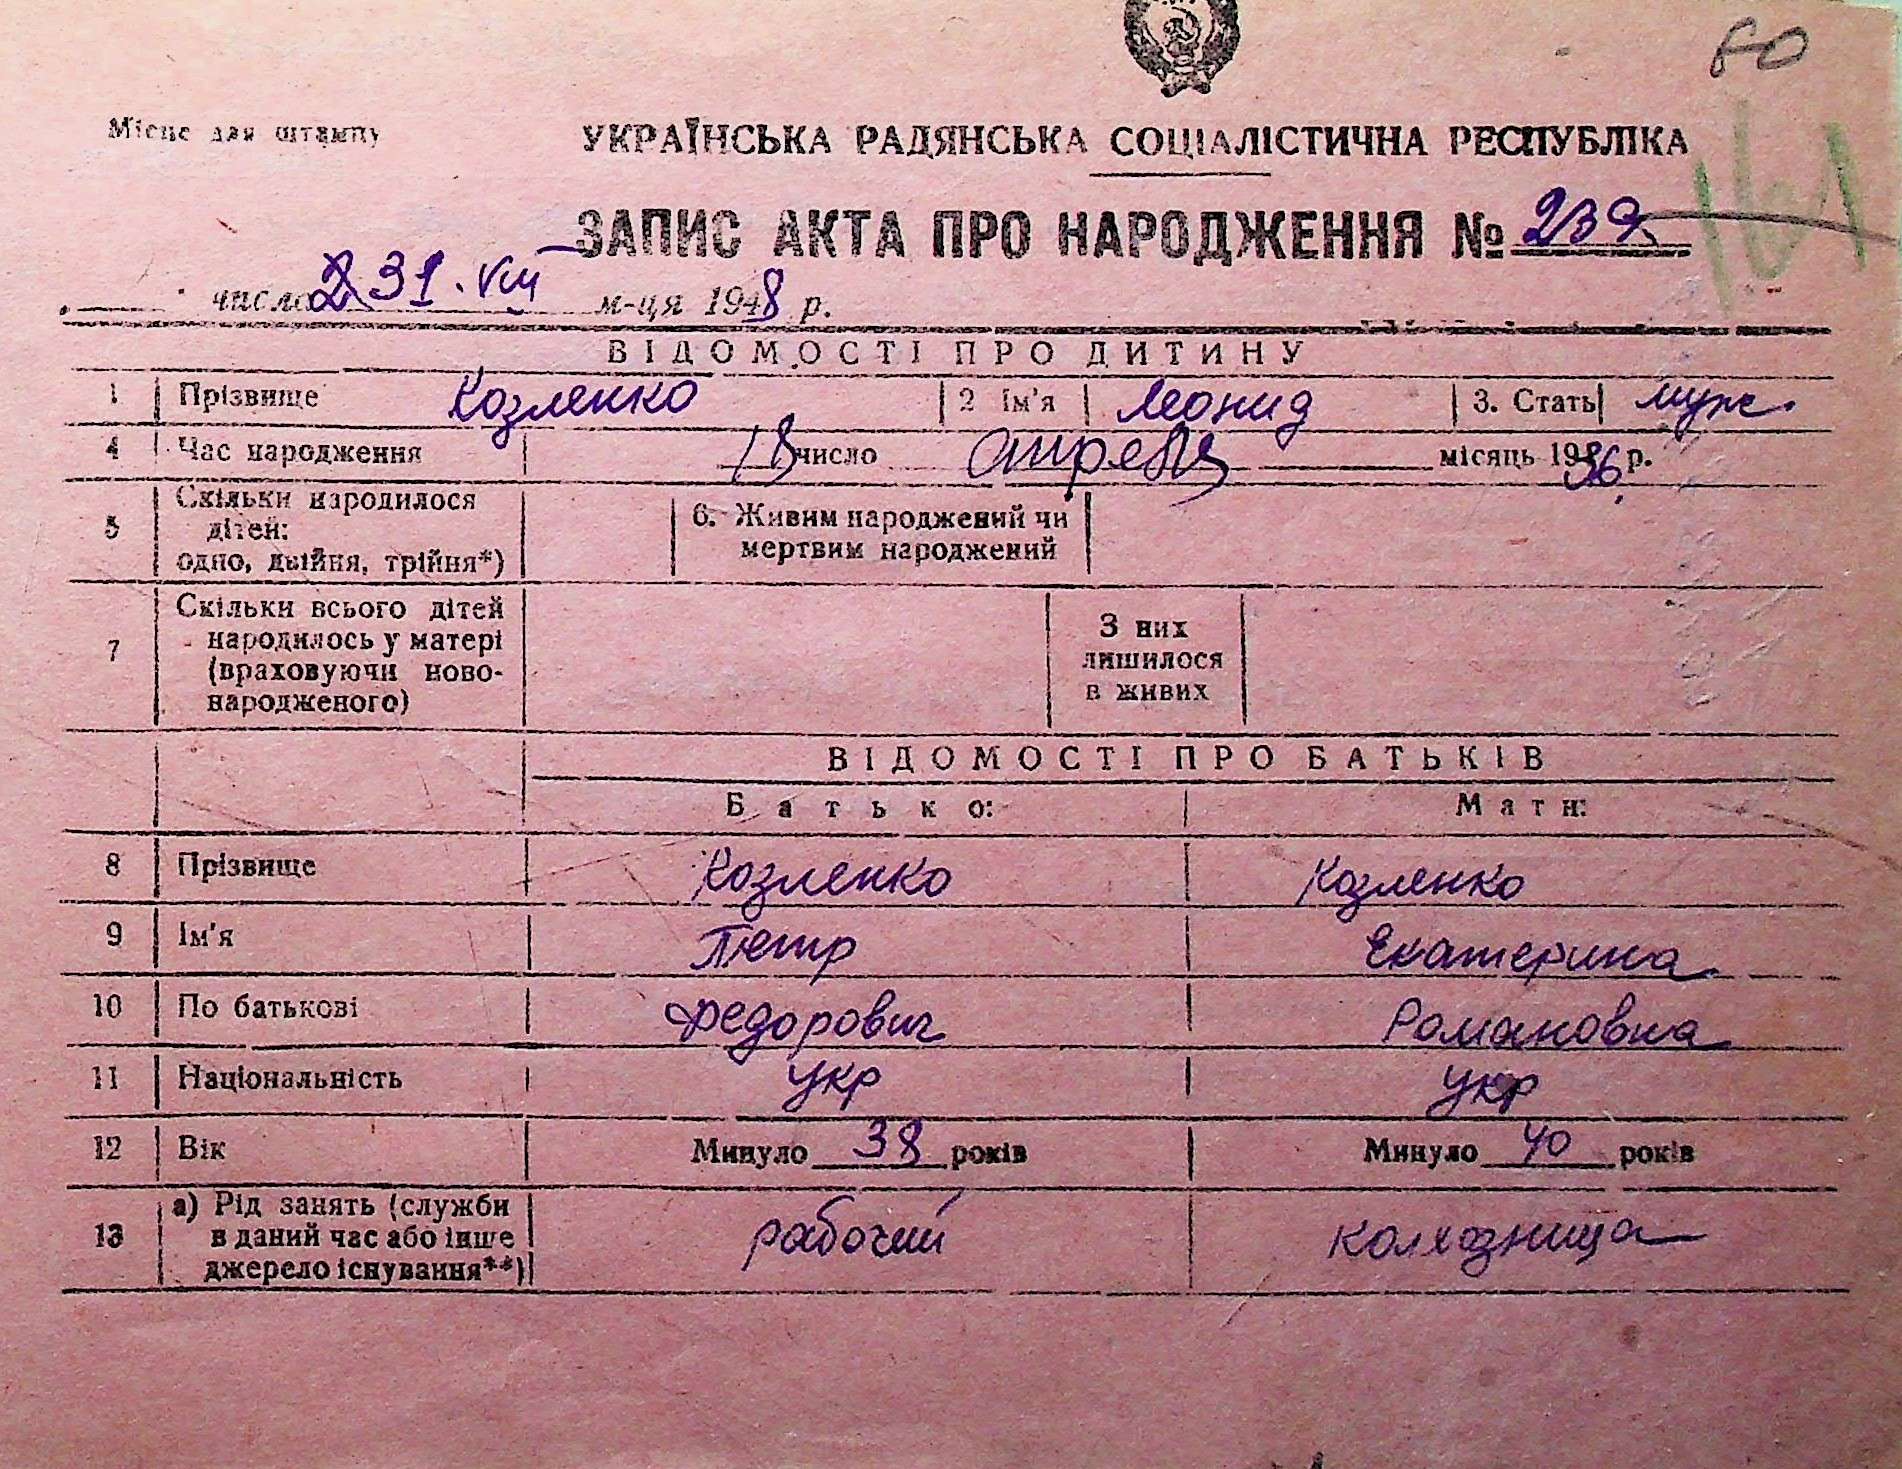 60
Місце для штампу
УКРАЇНСЬКА РАДЯНСЬКА СОЦІАЛІСТИЧНА РЕСПУБЛІКА
161
ЗАПИС АКТА ПРО НАРОДЖЕННЯ № 239
число 31. VIII м-ця 1948 р.
ВІДОМОСТІ ПРО ДИТИНУ
1 Прізвище Козленко 2 Ім'я Леонид 3. Стать муж.
4 Час народження 18 число апреля місяць 1936 р.
5 Скільки народилося дітей: одно, двійня, трійня*) 6. Живим народжений чи мертвим народжений
7 Скільки всього дітей народилось у матері (враховуючи ново-народженого) З них лишилося в живих
ВІДОМОСТІ ПРО БАТЬКІВ
Батько: Мати:
8 Прізвище Козленко Козленко
9 Ім'я Петр Екатерина
10 По батькові Федорович Романовна
11 Національність укр укр
12 Вік Минуло 38 років Минуло 40 років
13 а) Рід занять (служби в даний час або інше джерело існування**) рабочий колхозница